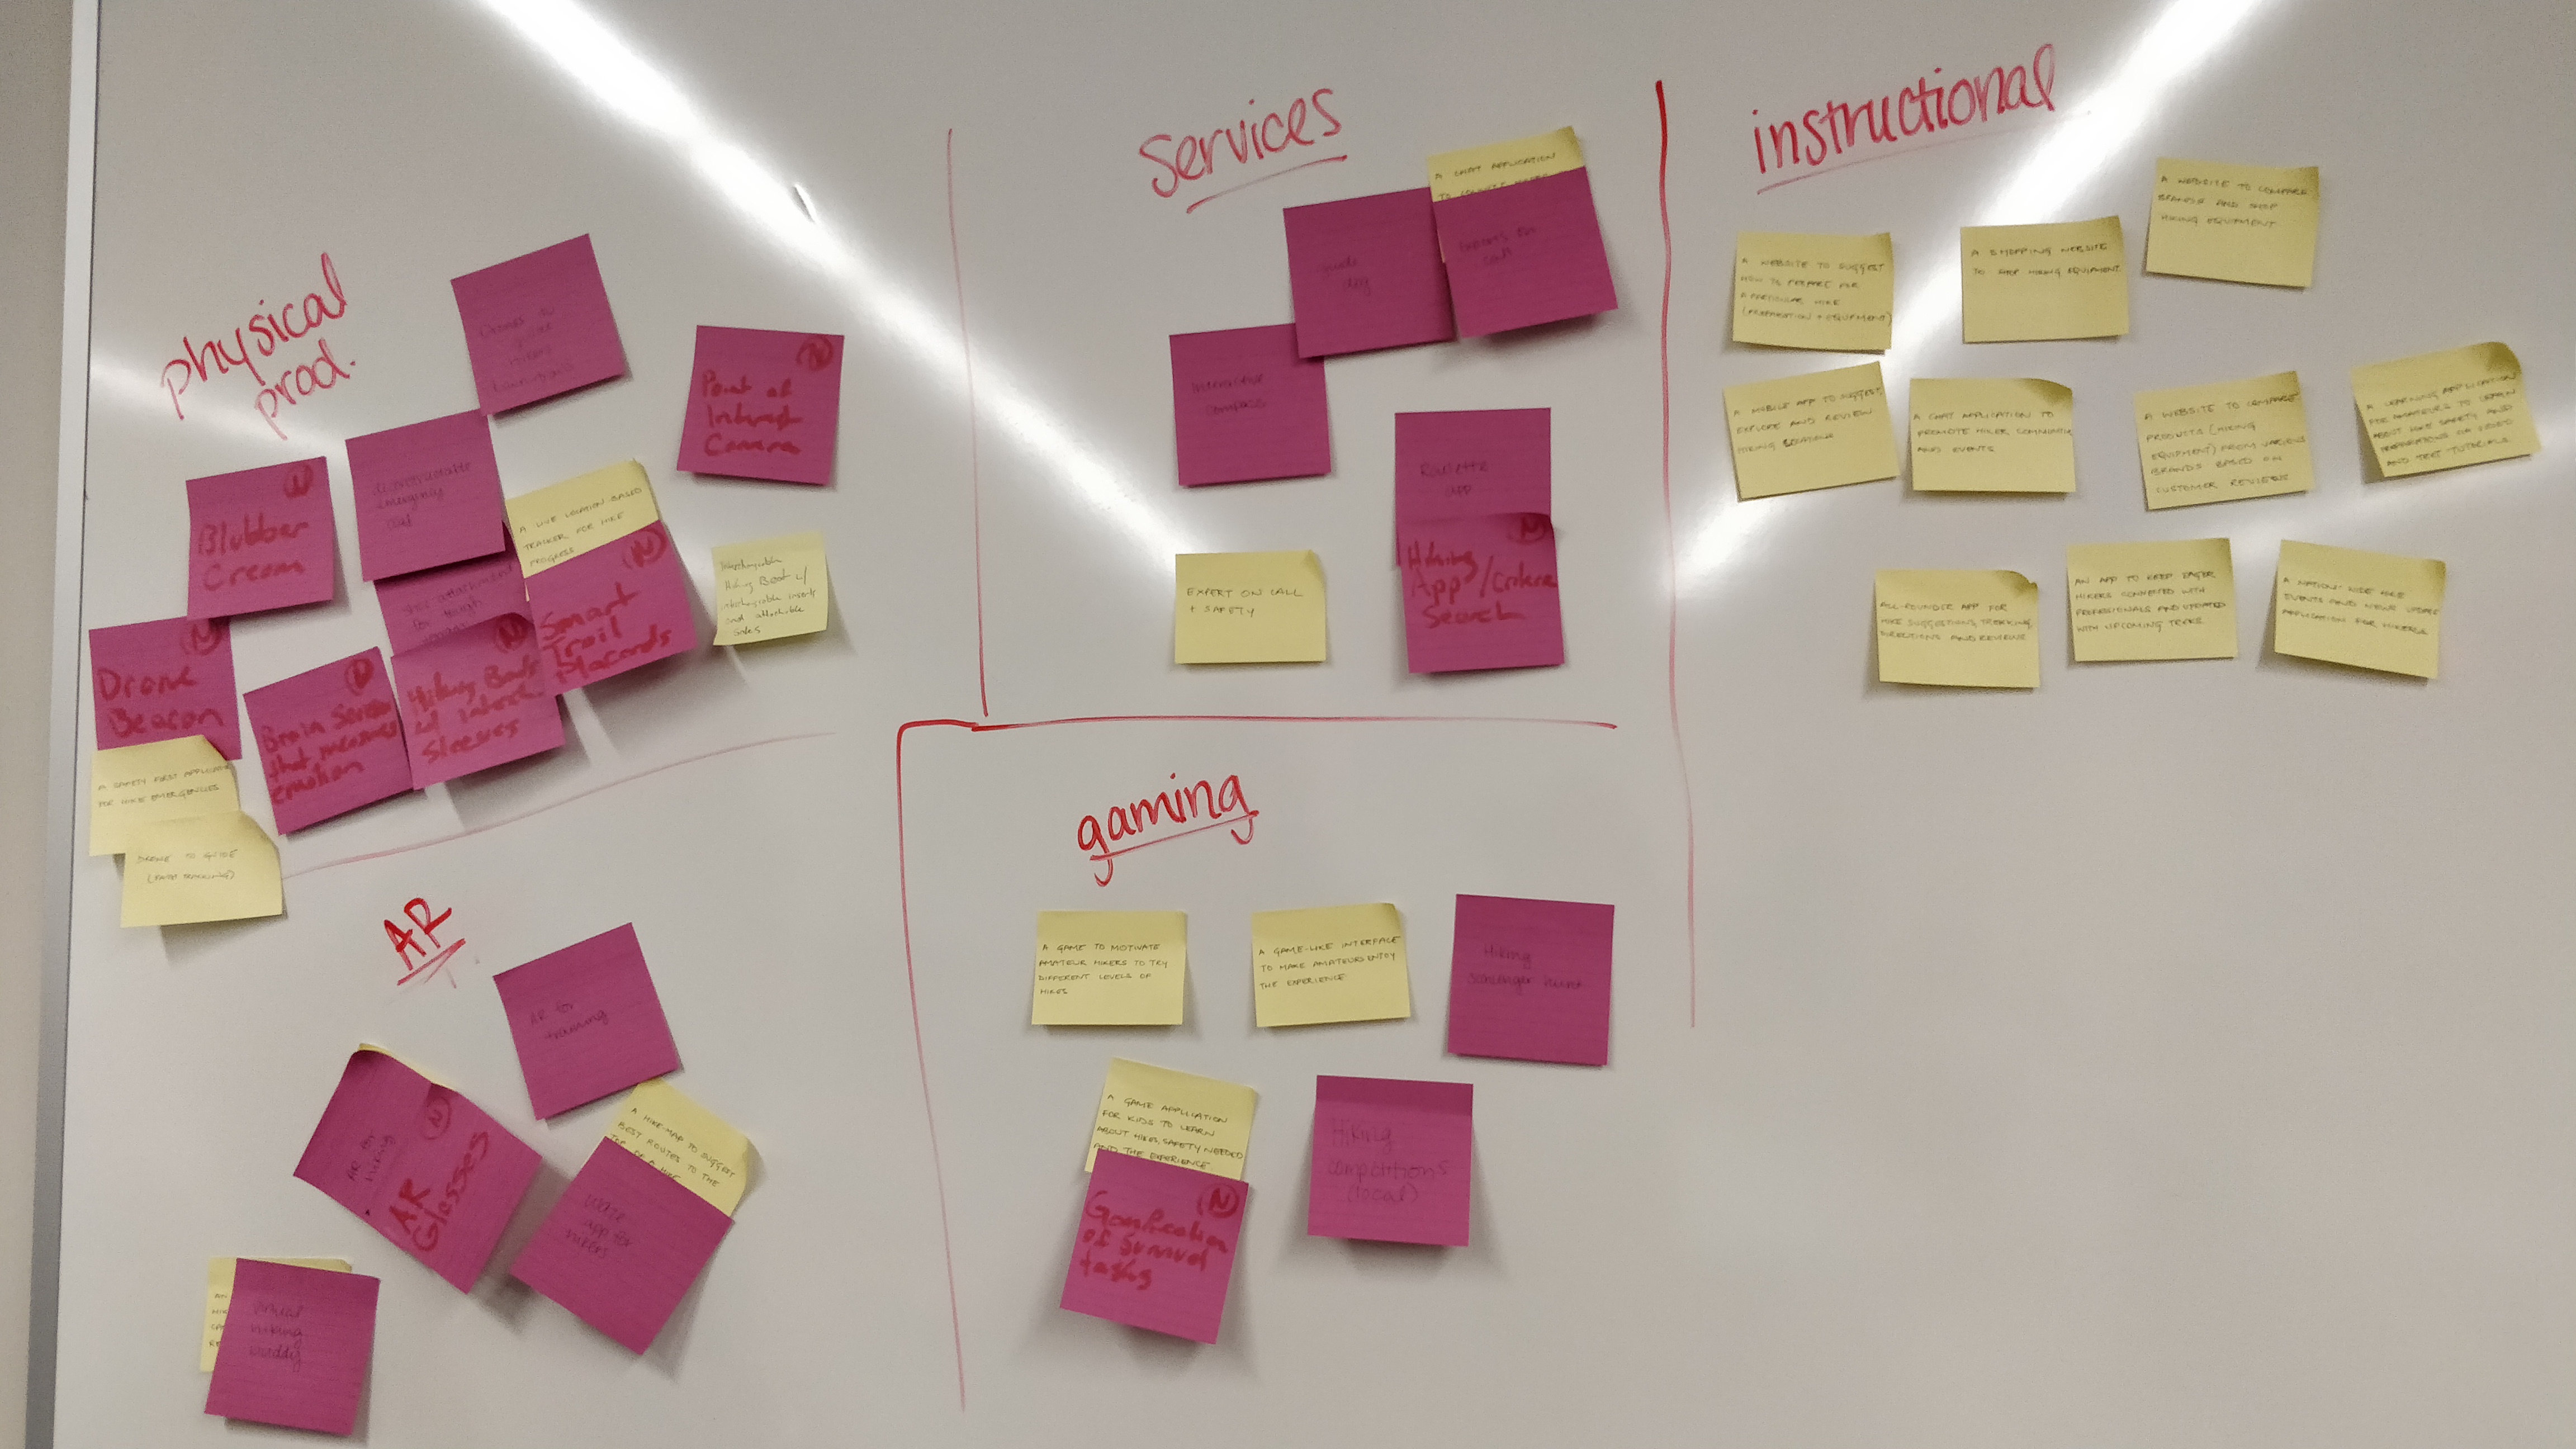 physical
prod.
Point of
Interest
Camera
N
Blubber
Cream
N
A LIVE LOCATION BASED
TRACKER FOR HIKE
PROGRESS
Smart
Trail
Placards
N
Interchangable
Hiking Boot w/
interchangable inserts
and attachable
soles
Drone
Beacon
N
Brain Sensor
that measures
emotion
N
Hiking Boots
w/ interch.
Sleeves
N
A SAFETY FIRST APPLICATION
FOR HIKE EMERGENCIES
DRONE TO GUIDE
(PATH TRACKING)
AR
AR for
training
AR for
hiking
AR
Glasses
N
A HIKE-MAP TO SUGGEST
BEST ROUTES TO THE
TOP OF A HIKE
app for
hikers
virtual
hiking
buddy
Services
A CHAT APPLICATION
Experts on
call
dog
Interactive
compass
Roulette
app
Hiking
App/Criteria
Search
N
EXPERT ON CALL
+ SAFETY
gaming
A GAME TO MOTIVATE
AMATEUR HIKERS TO TRY
DIFFERENT LEVELS OF
HIKES
A GAME-LIKE INTERFACE
TO MAKE AMATEURS ENJOY
THE EXPERIENCE
Hiking
scavenger hunt
A GAME APPLICATION
FOR KIDS TO LEARN
ABOUT HIKES, SAFETY NEEDED
AND THE EXPERIENCE
Gamification
of Survival
tasks
N
Hiking
competitions
(local)
instructional
A WEBSITE TO COMPARE
BRANDS AND SHOP
HIKING EQUIPMENT
A WEBSITE TO SUGGEST
HOW TO PREPARE FOR
A PARTICULAR HIKE
(PREPARATION + EQUIPMENT)
A SHOPPING WEBSITE
TO SHOP HIKING EQUIPMENT
A MOBILE APP TO SUGGEST,
EXPLORE AND REVIEW
HIKING LOCATIONS
A CHAT APPLICATION TO
PROMOTE HIKER COMMUNITY
AND EVENTS
A WEBSITE TO COMPARE
PRODUCTS (HIKING
EQUIPMENT) FROM VARIOUS
BRANDS BASED ON
CUSTOMER REVIEWS
A LEARNING APPLICATION
FOR AMATEURS TO LEARN
ABOUT HIKE SAFETY AND
PREPARATIONS BY VIDEO
AND TEXT TUTORIALS
ALL-ROUNDER APP FOR
HIKE SUGGESTIONS, TREKKING,
DIRECTIONS AND REVIEWS
AN APP TO KEEP EAGER
HIKERS CONNECTED WITH
PROFESSIONALS AND UPDATED
WITH UPCOMING TREKS
A NATION-WIDE HIKE
EVENTS AND NEWS UPDATE
APPLICATION FOR HIKERS